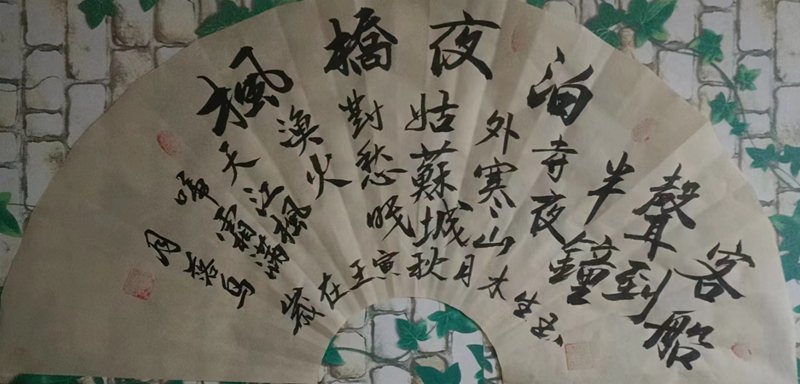 楓橋夜泊
月落烏
啼霜滿
天江楓
漁火
對愁眠
姑蘇城
外寒山
寺夜
半鐘
聲到
客船
歲在壬寅秋月